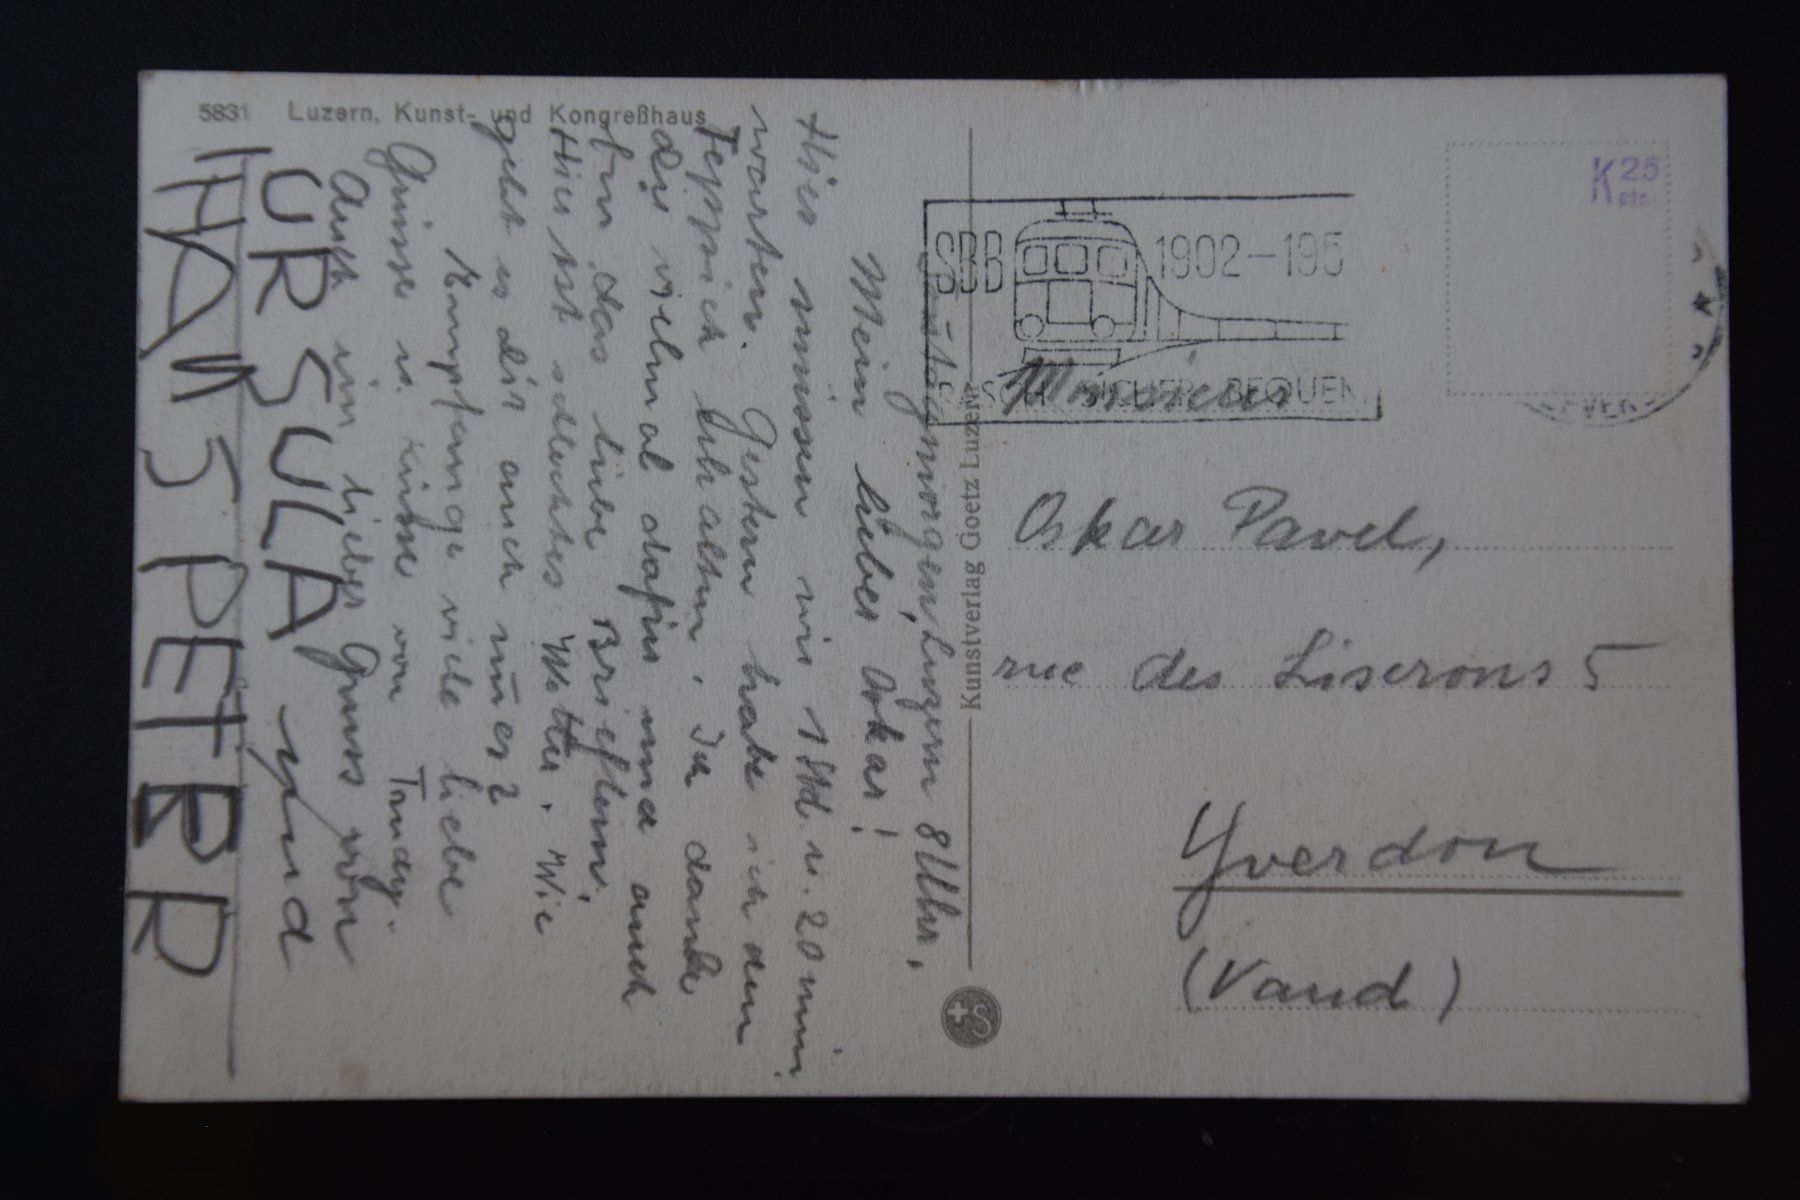 5831 Luzern, Kunst- und Kongreßhaus
K 25 cts.
SBB 1902-195
RASCH SICHER BEQUEM
Kunstverlag Goetz Luzern
Monsieur
Oskar Pavel,
rue des Liserons 5
Yverdon
(Vaud)
morgen, Luzern 8 Uhr,
Mein lieber Oskar!
Hier müssen wir 1 Std. u. 20 min
warten. Gestern habe ich den
Teppich erhalten. Ich danke
dir vielmal dafür und auch
für das liebe Brieflein.
Hier ist schlechtes Wetter. Wie
geht es dir auch
Empfange viele liebe
Grüsse u. Küsse von Trudy.
Auch ein lieber Gruss von
URSULA und
HANSPETER